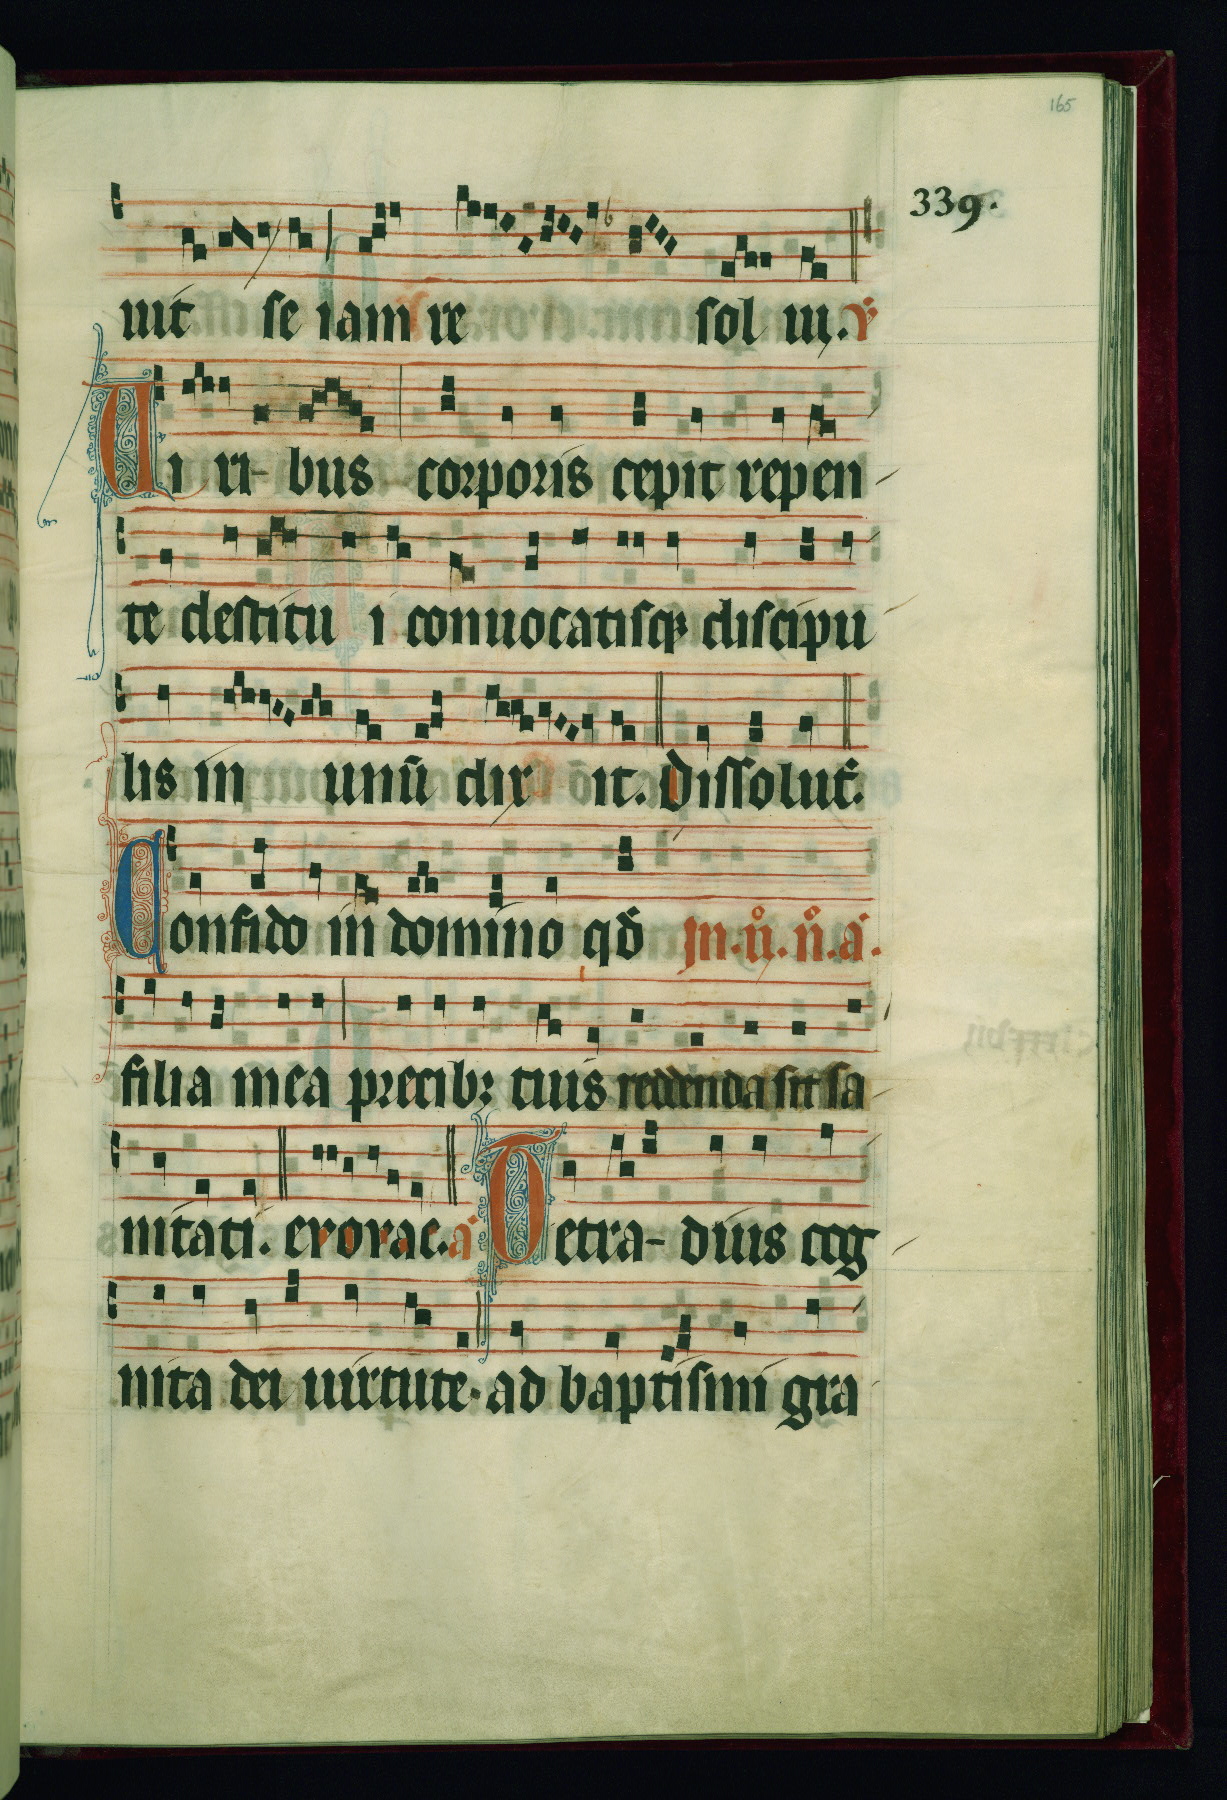 165
339.
uit se iam re sol ui. ℣
Uiri- bus corporis cepit repen
te destitu i conuocatisq; discipu
lis in unū dix it. Dissolut̄.
Confido in domino qđ In. iiͦ. nͦ. a.
filia mea precib; tuis reddenda sit sa
nitati. exorac. a Petra- diuis cog
nita dei uirtute. ad baptismi gra